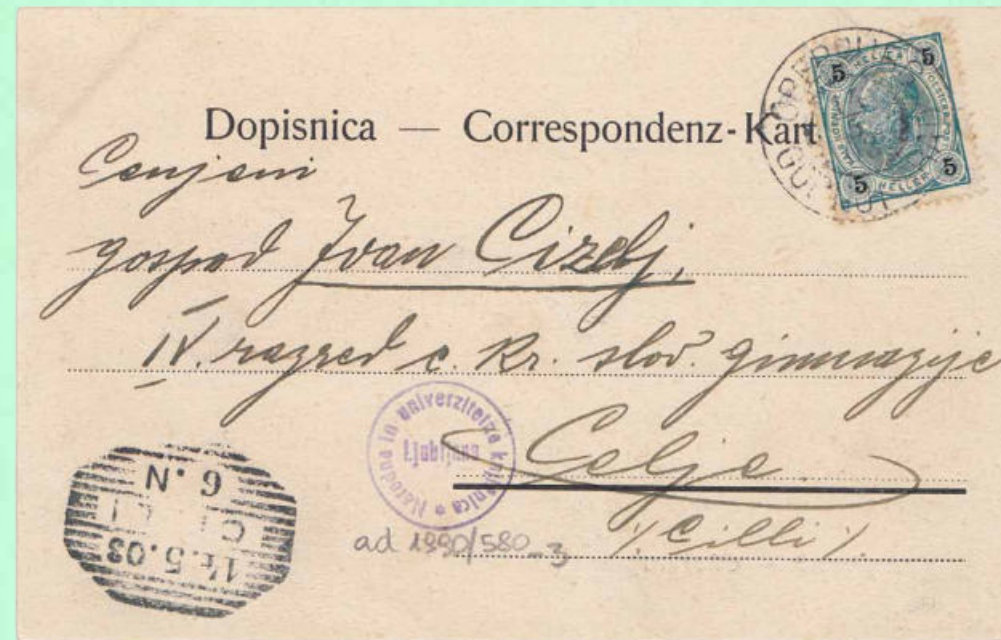 Dopisnica — Correspondenz-Kart
Cenjeni
gospod Ivan Cizelj,
IV. razred c. kr. slov. gimnazije
Celje
/. Cilli /.
5 HELLER 5
5 HELLER 5
Narodna in univerzitetna knjižnica
Ljubljana
ad 1990/580_3
6.N
CILLI
5.03